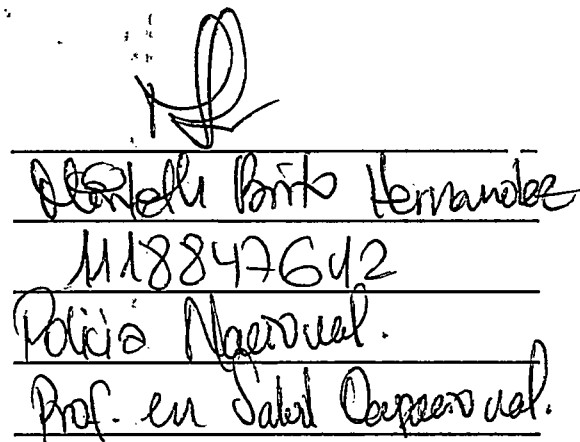 Brito Hernandez
1118847642
Policia Nacional.
Prof. en Salud Ocupacional.